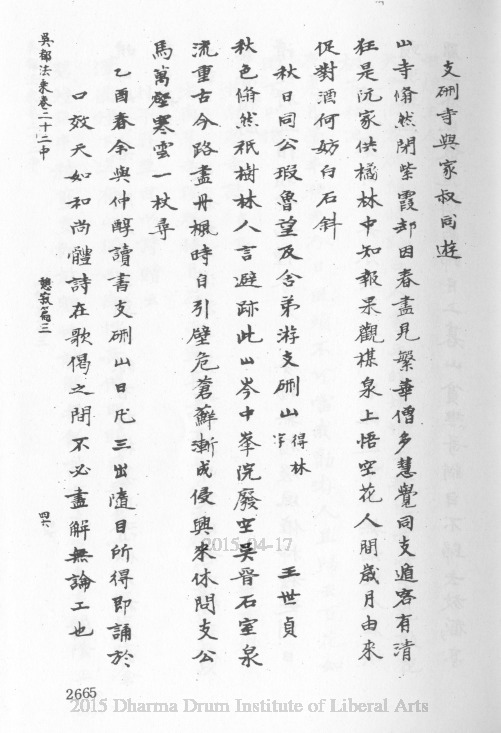 支硎寺與家叔同遊
山寺翛然閉紫霞却因春盡見繁華僧多慧覺同支遁客有清
狂是阮家供橘林中知報果觀棋泉上悟空花人間歲月由來
促對酒何妨白石斜
秋日同公瑕魯望及舍弟游支硎山得林字 王世貞
秋色翛然祇樹林人言避跡此山岑中峯院廢空吳晉石室泉
流重古今路盡丹楓時自引壁危蒼蘚漸成侵興來休問支公
馬萬壑寒雲一杖尋
乙酉春余與仲醇讀書支硎山日凡三出隨目所得即誦於
口效天如和尚體詩在歌偈之間不必盡解無論工也
吳都法乘卷二十二中
憩寂篇三
四六
2665
2015-04-17
2015 Dharma Drum Institute of Liberal Arts